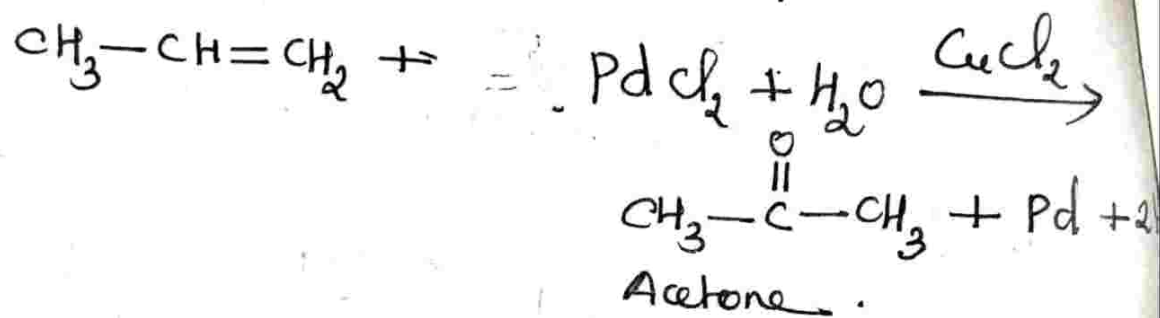 CH₃—CH=CH₂ + PdCl₂ + H₂O —CuCl₂→
O
||
CH₃—C—CH₃ + Pd + 2
Acetone.